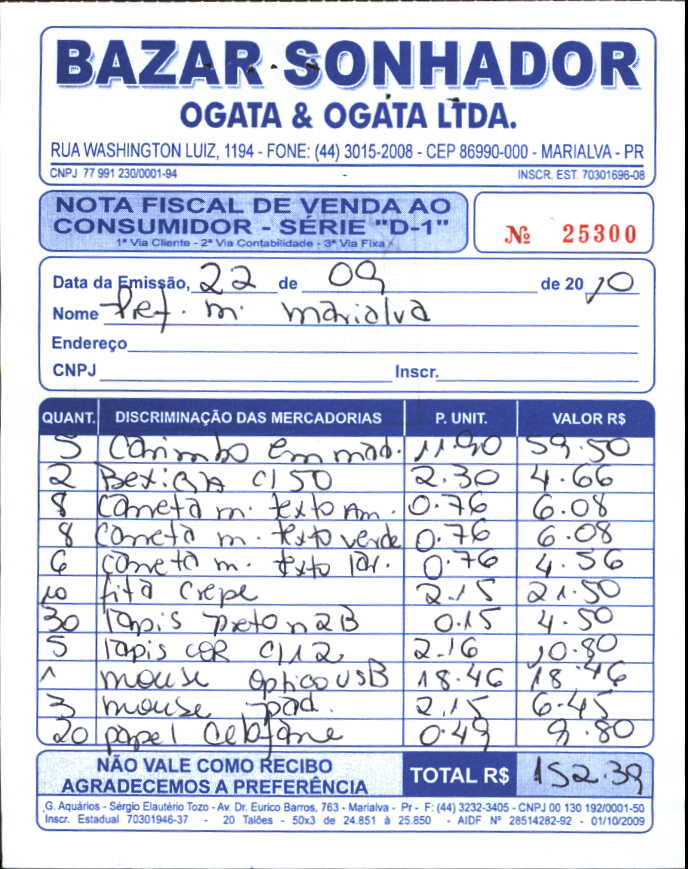 BAZAR SONHADOR
OGATA & OGATA LTDA.
RUA WASHINGTON LUIZ, 1194 - FONE: (44) 3015-2008 - CEP 86990-000 - MARIALVA - PR
CNPJ 77 991 230/0001-94 - INSCR. EST. 70301696-08
NOTA FISCAL DE VENDA AO
CONSUMIDOR - SÉRIE "D-1"
1ª Via Cliente - 2ª Via Contabilidade - 3ª Via Fixa
Nº 25300
Data da Emissão, 22 de 09 de 2010
Nome Pref. m. marialva
Endereço
CNPJ Inscr.
QUANT. DISCRIMINAÇÃO DAS MERCADORIAS P. UNIT. VALOR R$
5 Carimbo em mad. 11.90 59.50
2 Bexiga C/50 2.30 4.66
8 Caneta m. texto Am. 0.76 6.08
8 Caneta m. texto verde 0.76 6.08
6 Caneta m. texto lar. 0.76 4.56
10 fita crepe 2.15 21.50
30 lapis preto n2B 0.15 4.50
5 lapis cor C/12 2.16 10.80
1 mouse optico USB 18.46 18.46
3 mouse pad. 2.15 6.45
20 papel Celofane 0.49 9.80
NÃO VALE COMO RECIBO
AGRADECEMOS A PREFERÊNCIA
TOTAL R$ 152.39
G. Aquários - Sérgio Elautério Tozo - Av. Dr. Eurico Barros, 763 - Marialva - Pr - F: (44) 3232-3405 - CNPJ 00 130 192/0001-50
Inscr. Estadual 70301946-37 - 20 Talões - 50x3 de 24.851 à 25.850 - AIDF Nº 28514282-92 - 01/10/2009